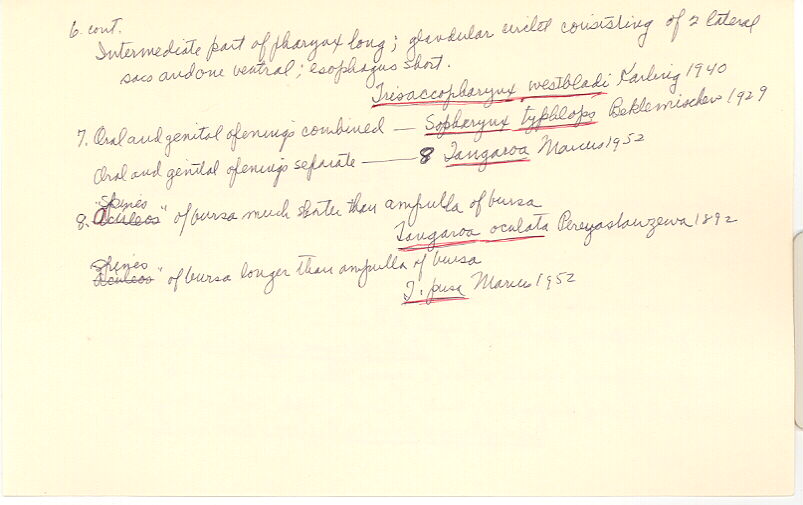 6. cont.
Intermediate part of pharynx long; glandular circlet consisting of 2 lateral
sacs and one ventral; esophagus short.
Trisaccopharynx westbladi Karling 1940
7. Oral and genital openings combined — Sopharynx typhlops Beklemischev 1929
Oral and genital openings separate — 8 Tangaroa Marcus 1952
Spines
8. "Aculeos" of bursa much shorter than ampulla of bursa
Tangaroa oculata Pereyaslawzewa 1892
Spines
"Aculeos" of bursa longer than ampulla of bursa
T. pusa Marcus 1952